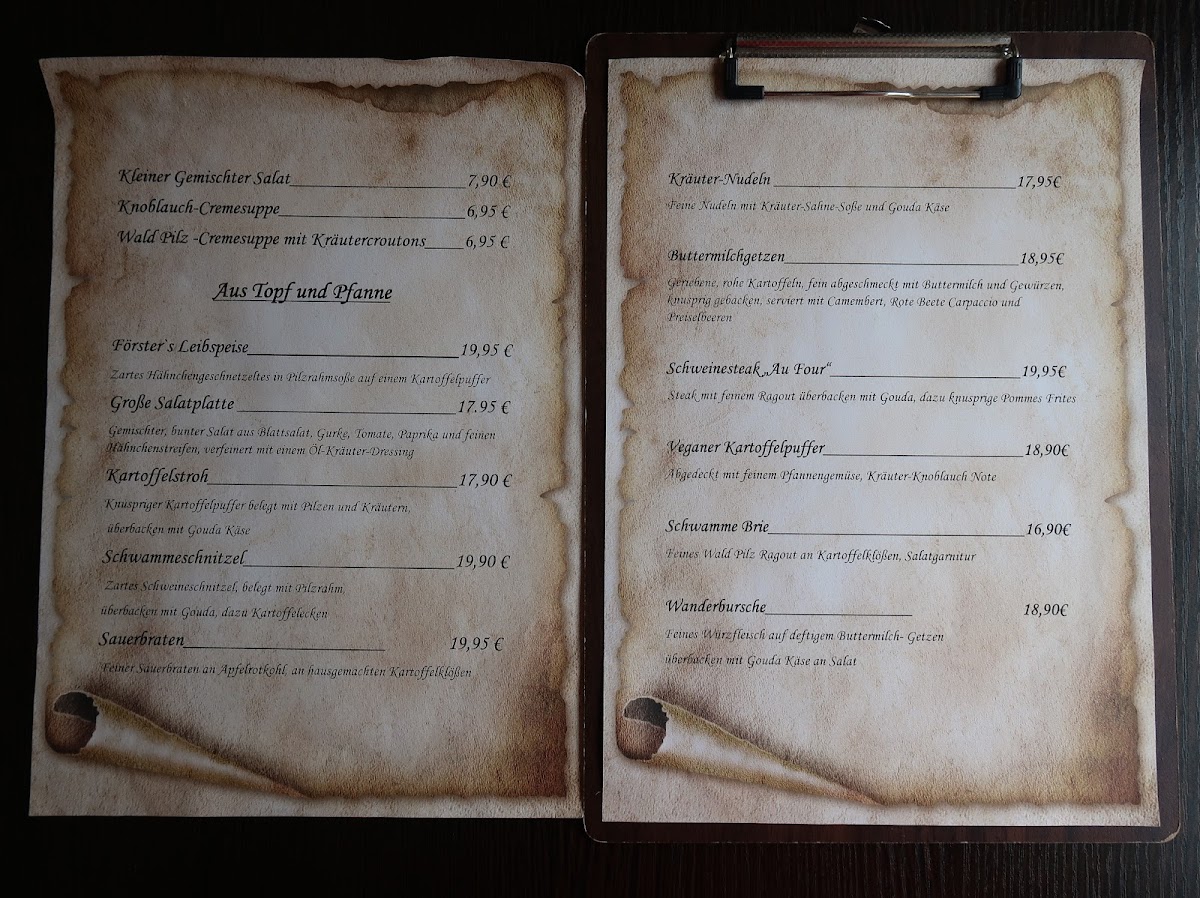 Kleiner Gemischter Salat 7,90 €
Knoblauch-Cremesuppe 6,95 €
Wald Pilz -Cremesuppe mit Kräutercroutons 6,95 €
Aus Topf und Pfanne
Förster`s Leibspeise 19,95 €
Zartes Hähnchengeschnetzeltes in Pilzrahmsoße auf einem Kartoffelpuffer
Große Salatplatte 17.95 €
Gemischter, bunter Salat aus Blattsalat, Gurke, Tomate, Paprika und feinen
Hähnchenstreifen, verfeinert mit einem Öl-Kräuter-Dressing
Kartoffelstroh 17,90 €
Knuspriger Kartoffelpuffer belegt mit Pilzen und Kräutern,
überbacken mit Gouda Käse
Schwammeschnitzel 19,90 €
Zartes Schweineschnitzel, belegt mit Pilzrahm,
überbacken mit Gouda, dazu Kartoffelecken
Sauerbraten 19,95 €
Feiner Sauerbraten an Apfelrotkohl, an hausgemachten Kartoffelklößen
Kräuter-Nudeln 17,95€
Feine Nudeln mit Kräuter-Sahne-Soße und Gouda Käse
Buttermilchgetzen 18,95€
Geriebene, rohe Kartoffeln, fein abgeschmeckt mit Buttermilch und Gewürzen,
knusprig gebacken, serviert mit Camembert, Rote Beete Carpaccio und
Preiselbeeren
Schweinesteak „Au Four“ 19,95€
Steak mit feinem Ragout überbacken mit Gouda, dazu knusprige Pommes Frites
Veganer Kartoffelpuffer 18,90€
Abgedeckt mit feinem Pfannengemüse, Kräuter-Knoblauch Note
Schwamme Brie 16,90€
Feines Wald Pilz Ragout an Kartoffelklößen, Salatgarnitur
Wanderbursche 18,90€
Feines Würzfleisch auf deftigem Buttermilch- Getzen
überbacken mit Gouda Käse an Salat